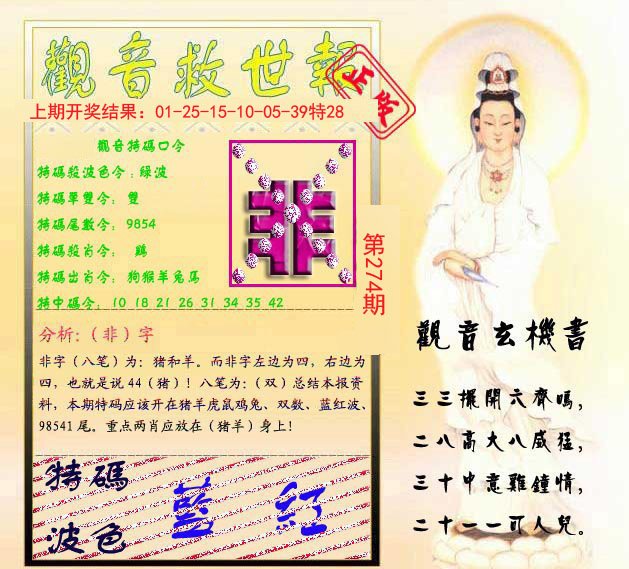 觀音救世報
正版
上期开奖结果：01-25-15-10-05-39特28
觀音特碼口令
特碼殺波色令：绿波
特碼單雙令： 雙
特碼尾數令： 9854
特碼殺肖令： 鷄
特碼出肖令： 狗猴羊兔馬
特中碼令： 10 18 21 26 31 34 35 42
非
第274期
分析:（非）字
非字（八笔）为：猪和羊。而非字左边为四，右边为
四，也就是说 44（猪）！八笔为:（双）总结本报资
料，本期特码应该开在猪羊虎鼠鸡兔、双数、蓝红波、
98541 尾。重点两肖应放在（猪羊）身上！
特碼
波色
藍 紅
觀音玄機書
三三擺開六齊鳴，
二八高大八威猛，
三十中意雞鐘情，
二十一一可人兒。